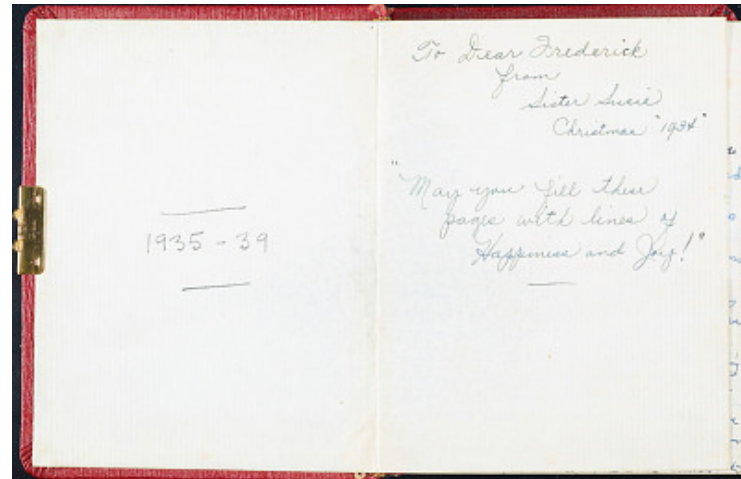 1935 - 39
To Dear Frederick
from
Sister Susie
Christmas "1934"
"May you fill these
pages with lines of
Happiness and Joy!"